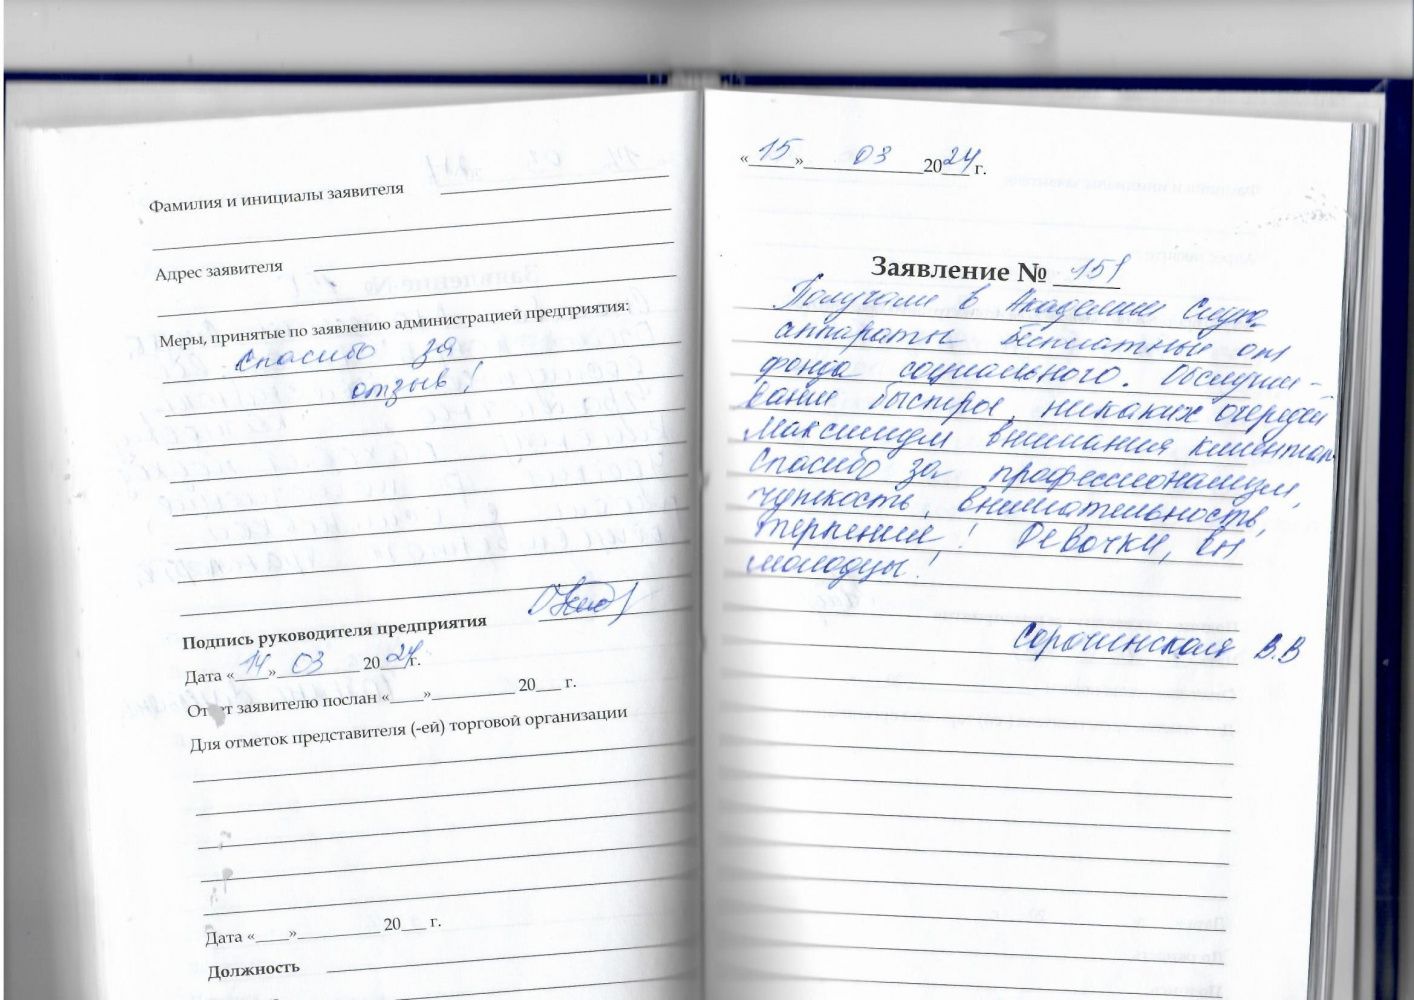 Фамилия и инициалы заявителя
Адрес заявителя
Меры, принятые по заявлению администрацией предприятия:
Спасибо за
отзыв!
Подпись руководителя предприятия
Дата «14» 03 2024 г.
Ответ заявителю послан «____»__________ 20___ г.
Для отметок представителя (-ей) торговой организации
Дата «____»__________ 20___ г.
Должность
«15» 03 2024 г.
Заявление № 151
Получали в Академии Слуха
аппараты бесплатные от
фонда социального. Обслужи-
вание быстрое, никаких очередей
Максимум внимания клиентам
Спасибо за профессионализм,
чуткость, внимательность,
терпение! Девочки, вы
молодцы!
Сорочинская В.В